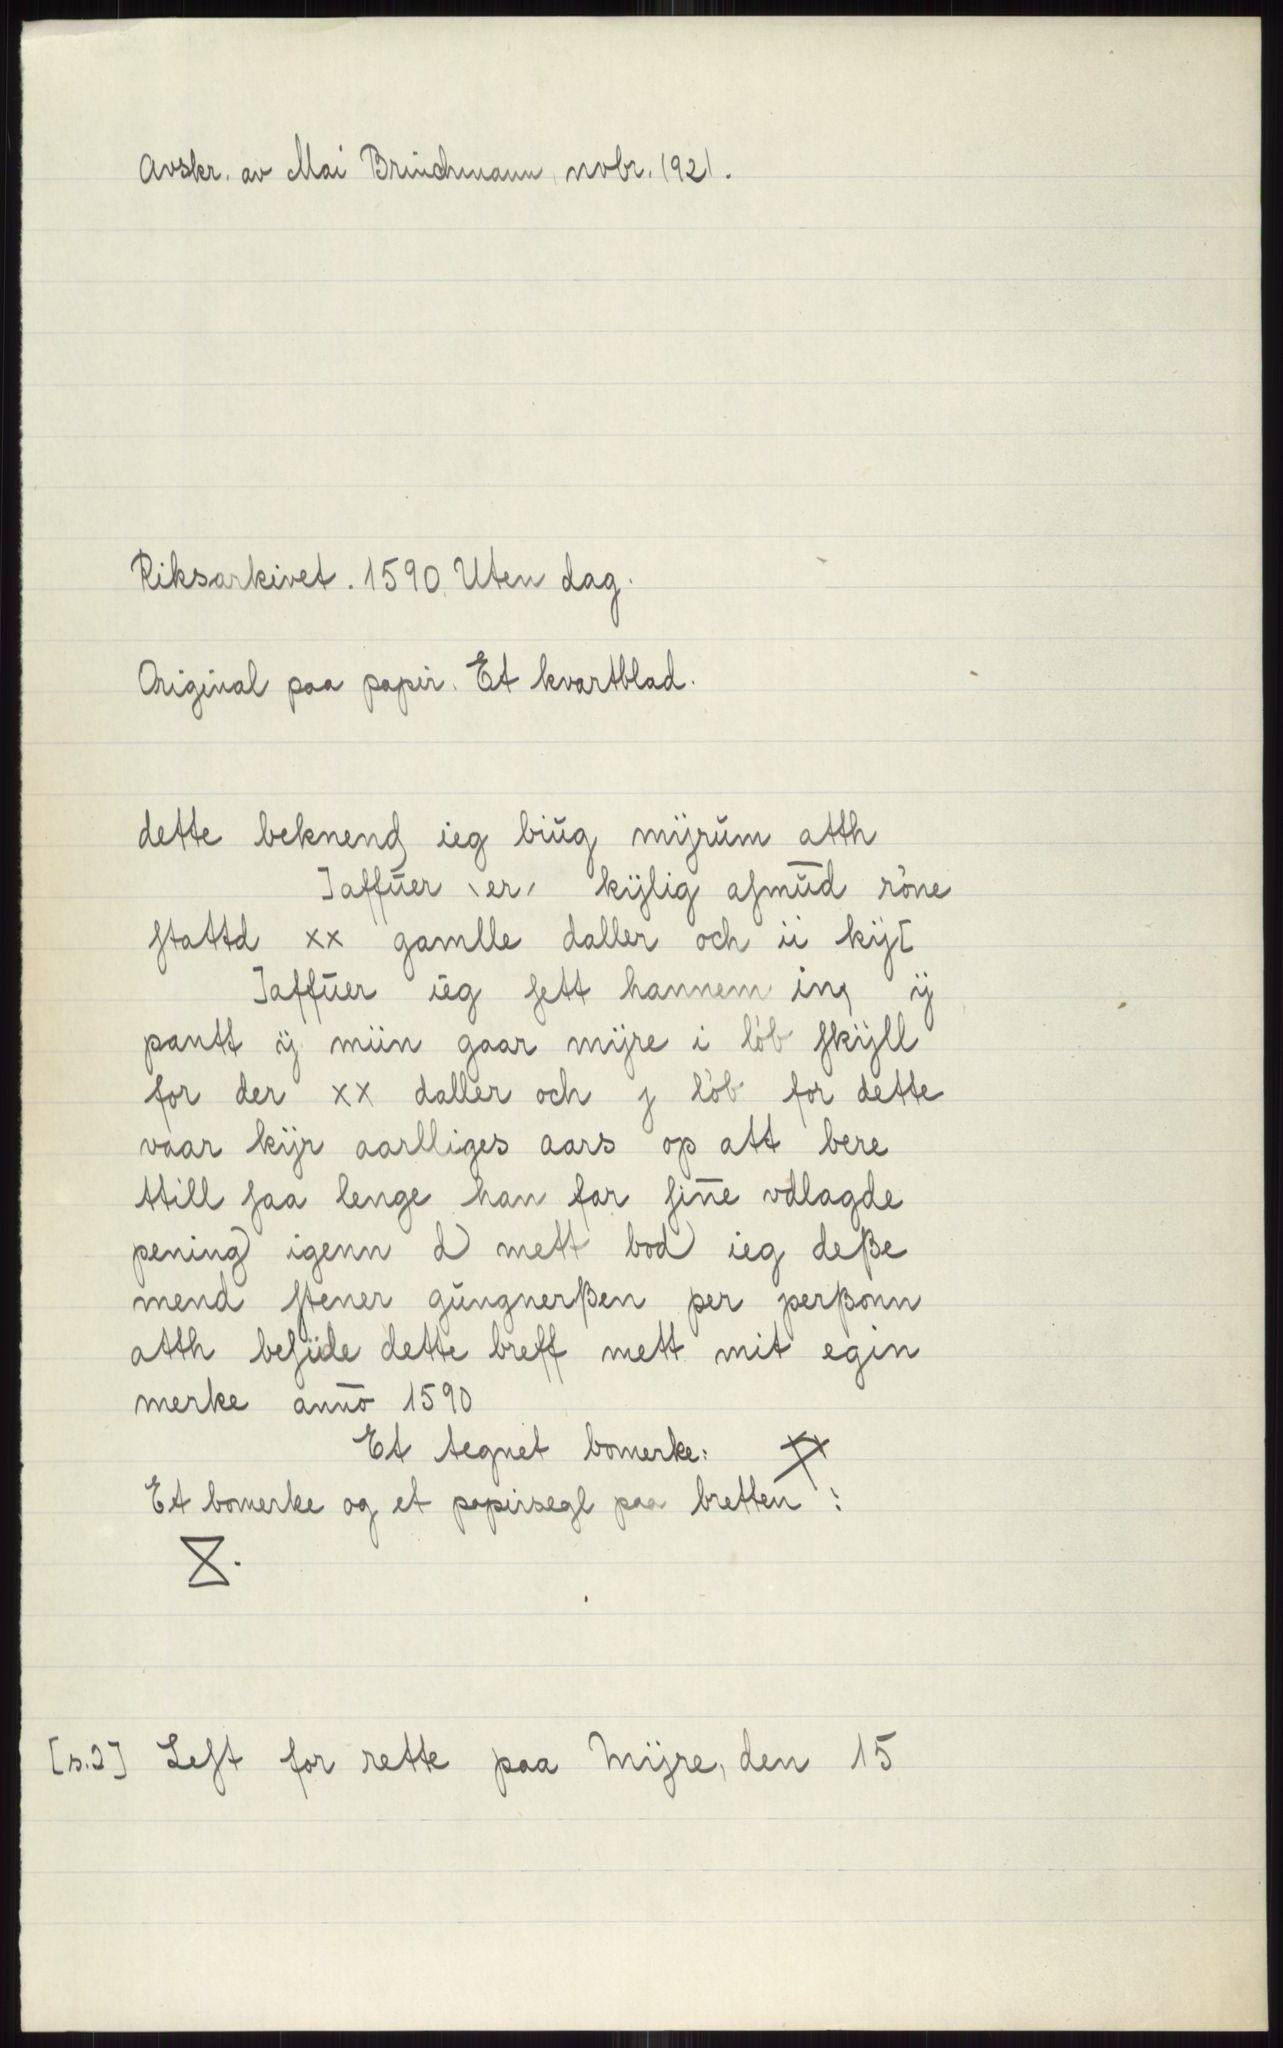 Avskr. av Mai Brinchmann, novbr. 1921.
Riksarkivet. 1590. Uten dag.
Original paa papir. Et kvartblad.
dette beknend ieg biug mÿrum atth
]affuer \er/ kÿlig asmūd röne
stattd xx gamlle daller och ii kÿ[
]affuer ieg sett hannem ing ÿ
pantt ÿ miin gaar mÿre i löb skÿll
for der xx daller och j löb for dette
vaar kÿr aarlliges aars op att bere
ttill saa lenge han far sin̄e vdlagde
pening igenn d mett bod ieg deße
mend stener gungnerßen per perßonn
atth besiide dette breff mett mit egin
merke anno 1590
Et tegnet bomerke:
Et bomerke og et papirsegl paa bretten:
[s.2] Lest for rette paa Mÿre, den 15